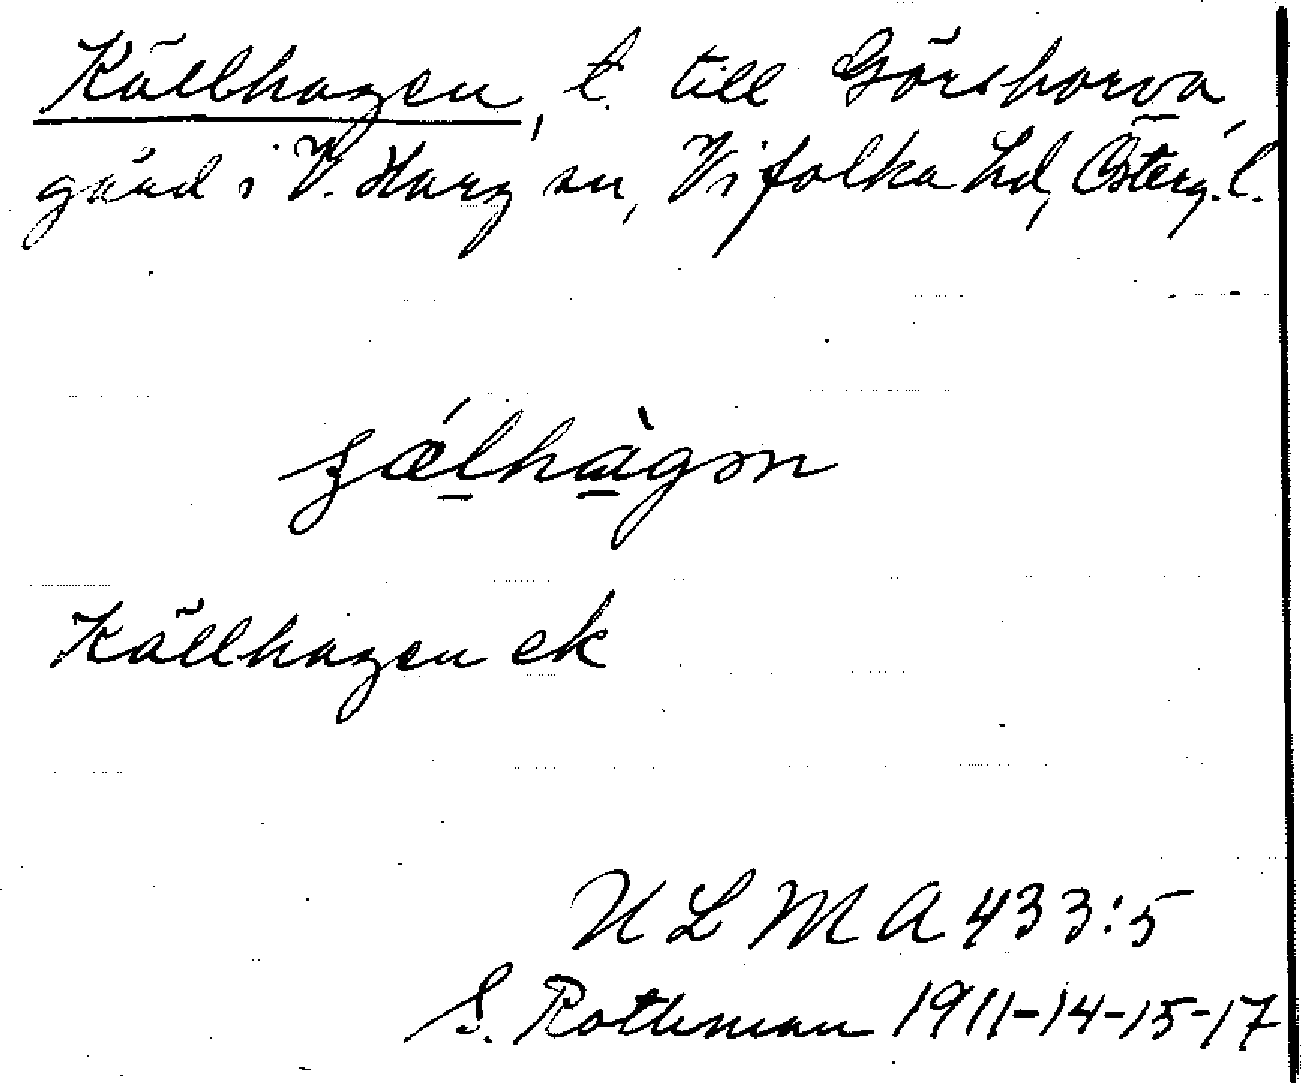 Källhagen, t. till Görsharva
gård i V. Harg sn, Vifolka hd, Österg. l.
Källhagen ek
ULMA 433:5
S. Rothman 1911-14-15-17